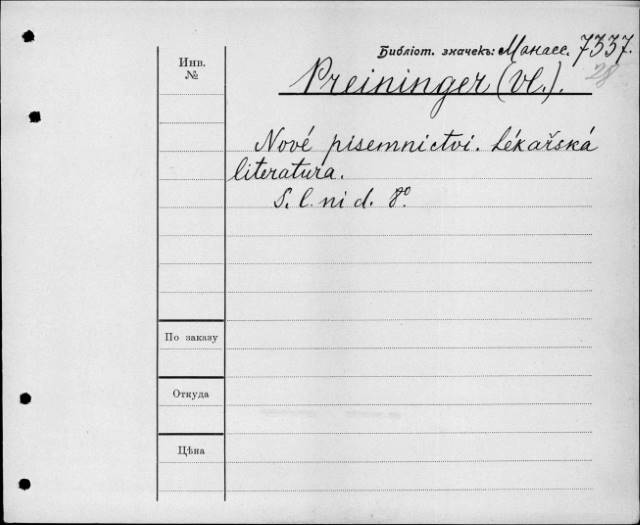 Библіот. значекъ: Манасс. 7337.
28
Инв.
№
Preininger (Vl.).
Nové písemnictvi. Lékařská
literatura.
S. l. ni d. 8°.
По заказу
Откуда
Цѣна